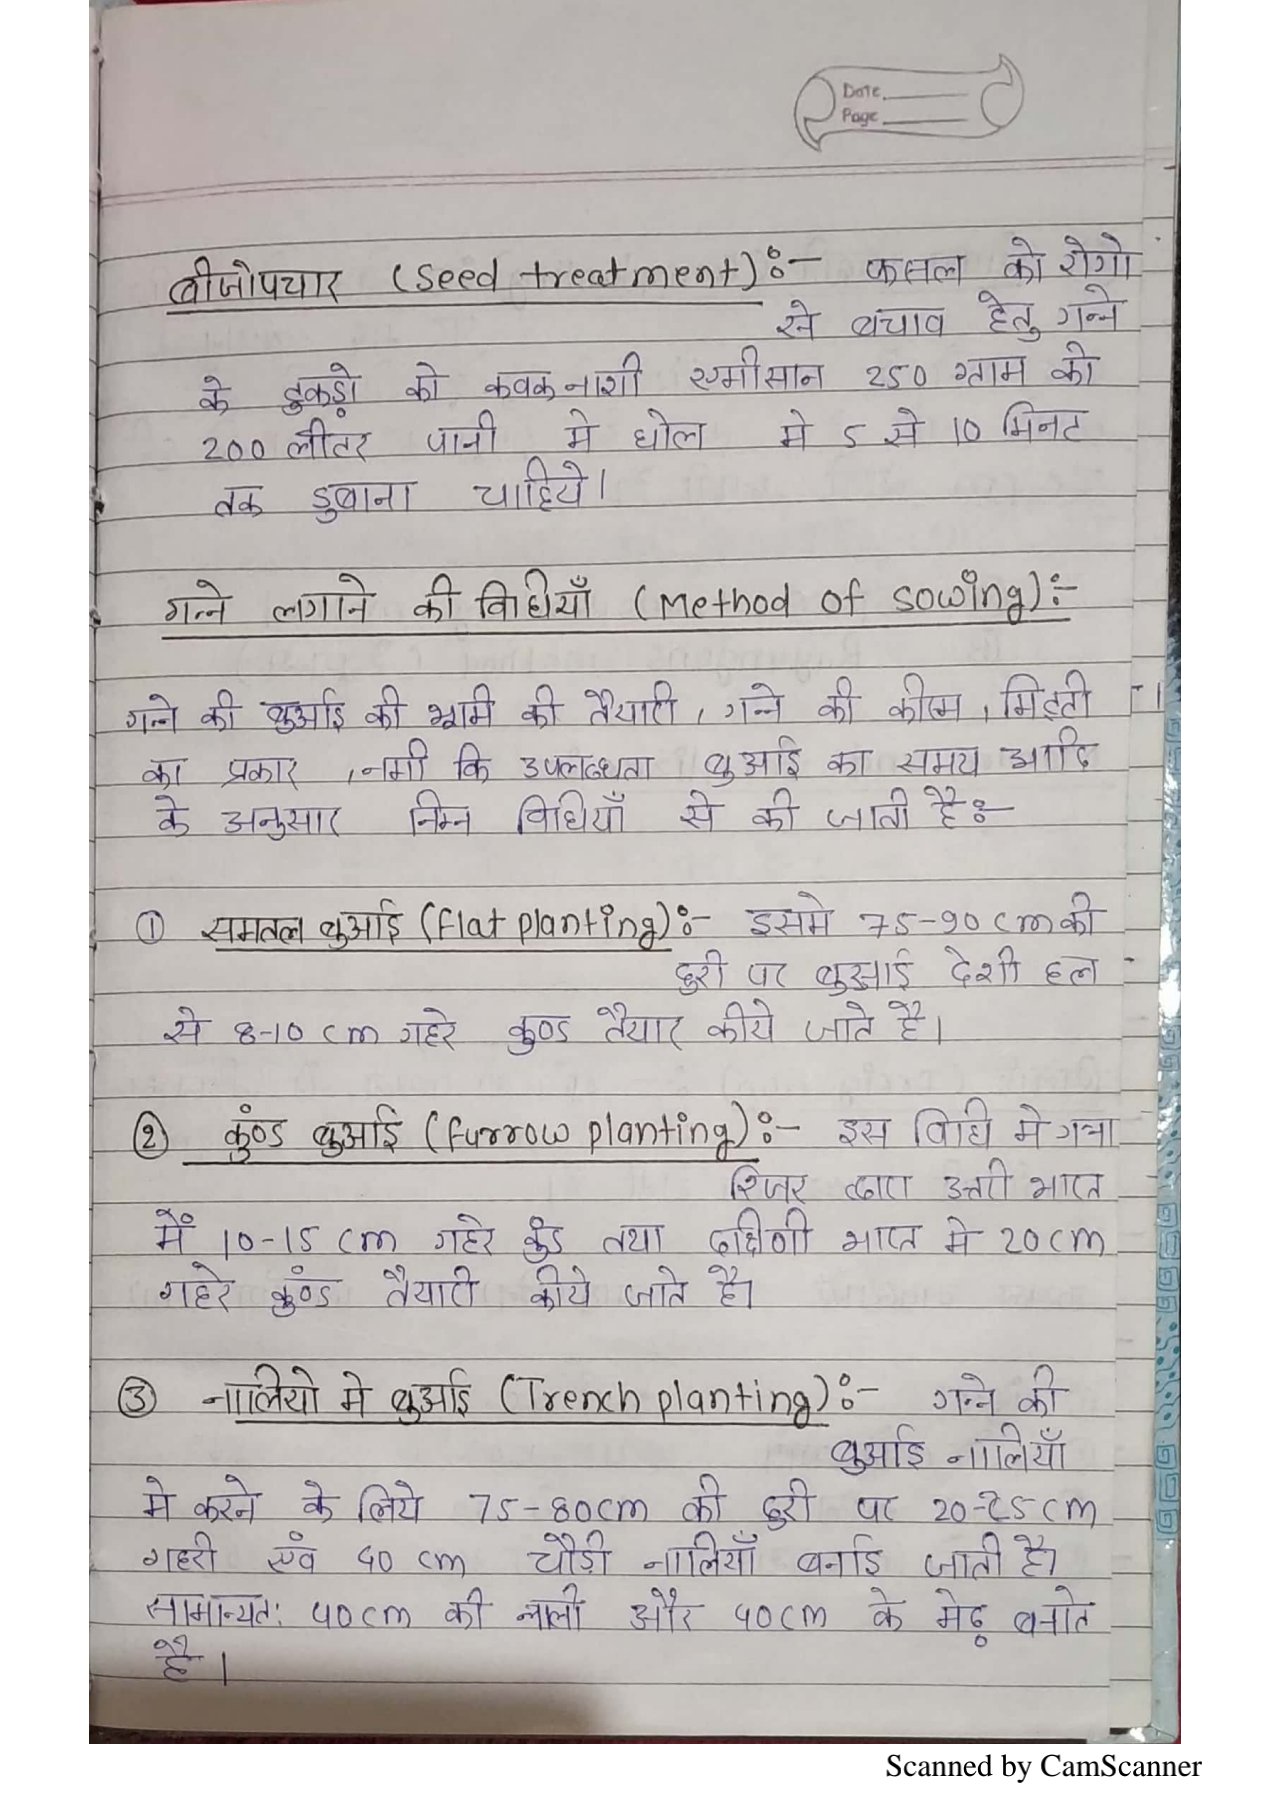 Date
Page
बीजोपचार (Seed treatment):- फसल को रोगो
से बचाव हेतु गन्ने
के टुकड़ो को कवकनाशी एमीसान 250 ग्राम को
200 लीटर पानी मे घोल मे 5 से 10 मिनट
तक डुबाना चाहिये।
गन्ने लगाने की विधियाँ (Method of sowing):-
गन्ने की बुआई की भूमी की तैयारी, गन्ने की कीस्म, मिट्टी
का प्रकार, नमी कि उपलब्धता बुआई का समय आदि
के अनुसार निम्न विधियाँ से की जाती है:-
① समतल बुआई (Flat planting):- इसमे 75-90 cm की
दुरी पर बुआई देशी हल
से 8-10 cm गहरे कुण्ड तैयार कीये जाते है।
② कुंण्ड बुआई (furrow planting):- इस विधि मे गन्ना
रिजर द्वारा उत्तरी भारत
में 10-15 cm गहरे कुंड तथा दक्षिणी भारत मे 20 cm
गहरे कुंण्ड तैयारी कीये जाते है।
③ नालियो मे बुआई (Trench planting):- गन्ने की
बुआई नालियाँ
मे करने के लिये 75-80cm की दुरी पर 20-25 cm
गहरी एंव 40 cm चौड़ी नालियाँ बनाई जाती है।
सामान्यत: 40cm की नाली और 40cm के मेढ़ बनाते
है।
Scanned by CamScanner